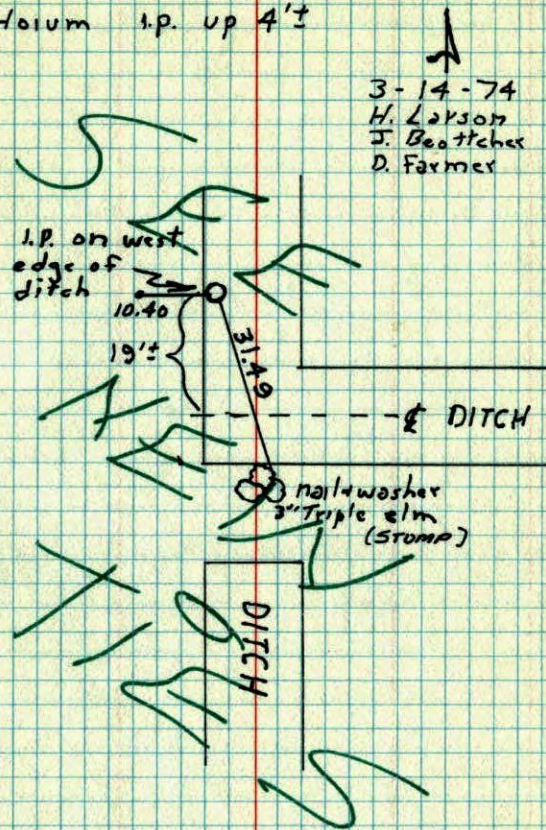 Holum I.P. up 4'±
3-14-74
H. Larson
J. Beottcher
D. Farmer
I.P. on west
edge of
ditch
10.40
19'±
31.49
℄ DITCH
nail+washer
3" Triple elm
(STUMP)
DITCH